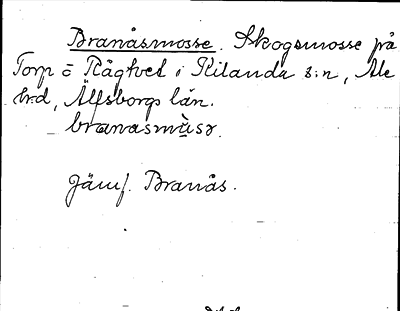 Branåsmosse. Skogsmosse på
Torp o Rågtvet i Kilanda s:n, Ale
hrd, Älfsborgs län.
branasmùsr.
Jämf. Branås.